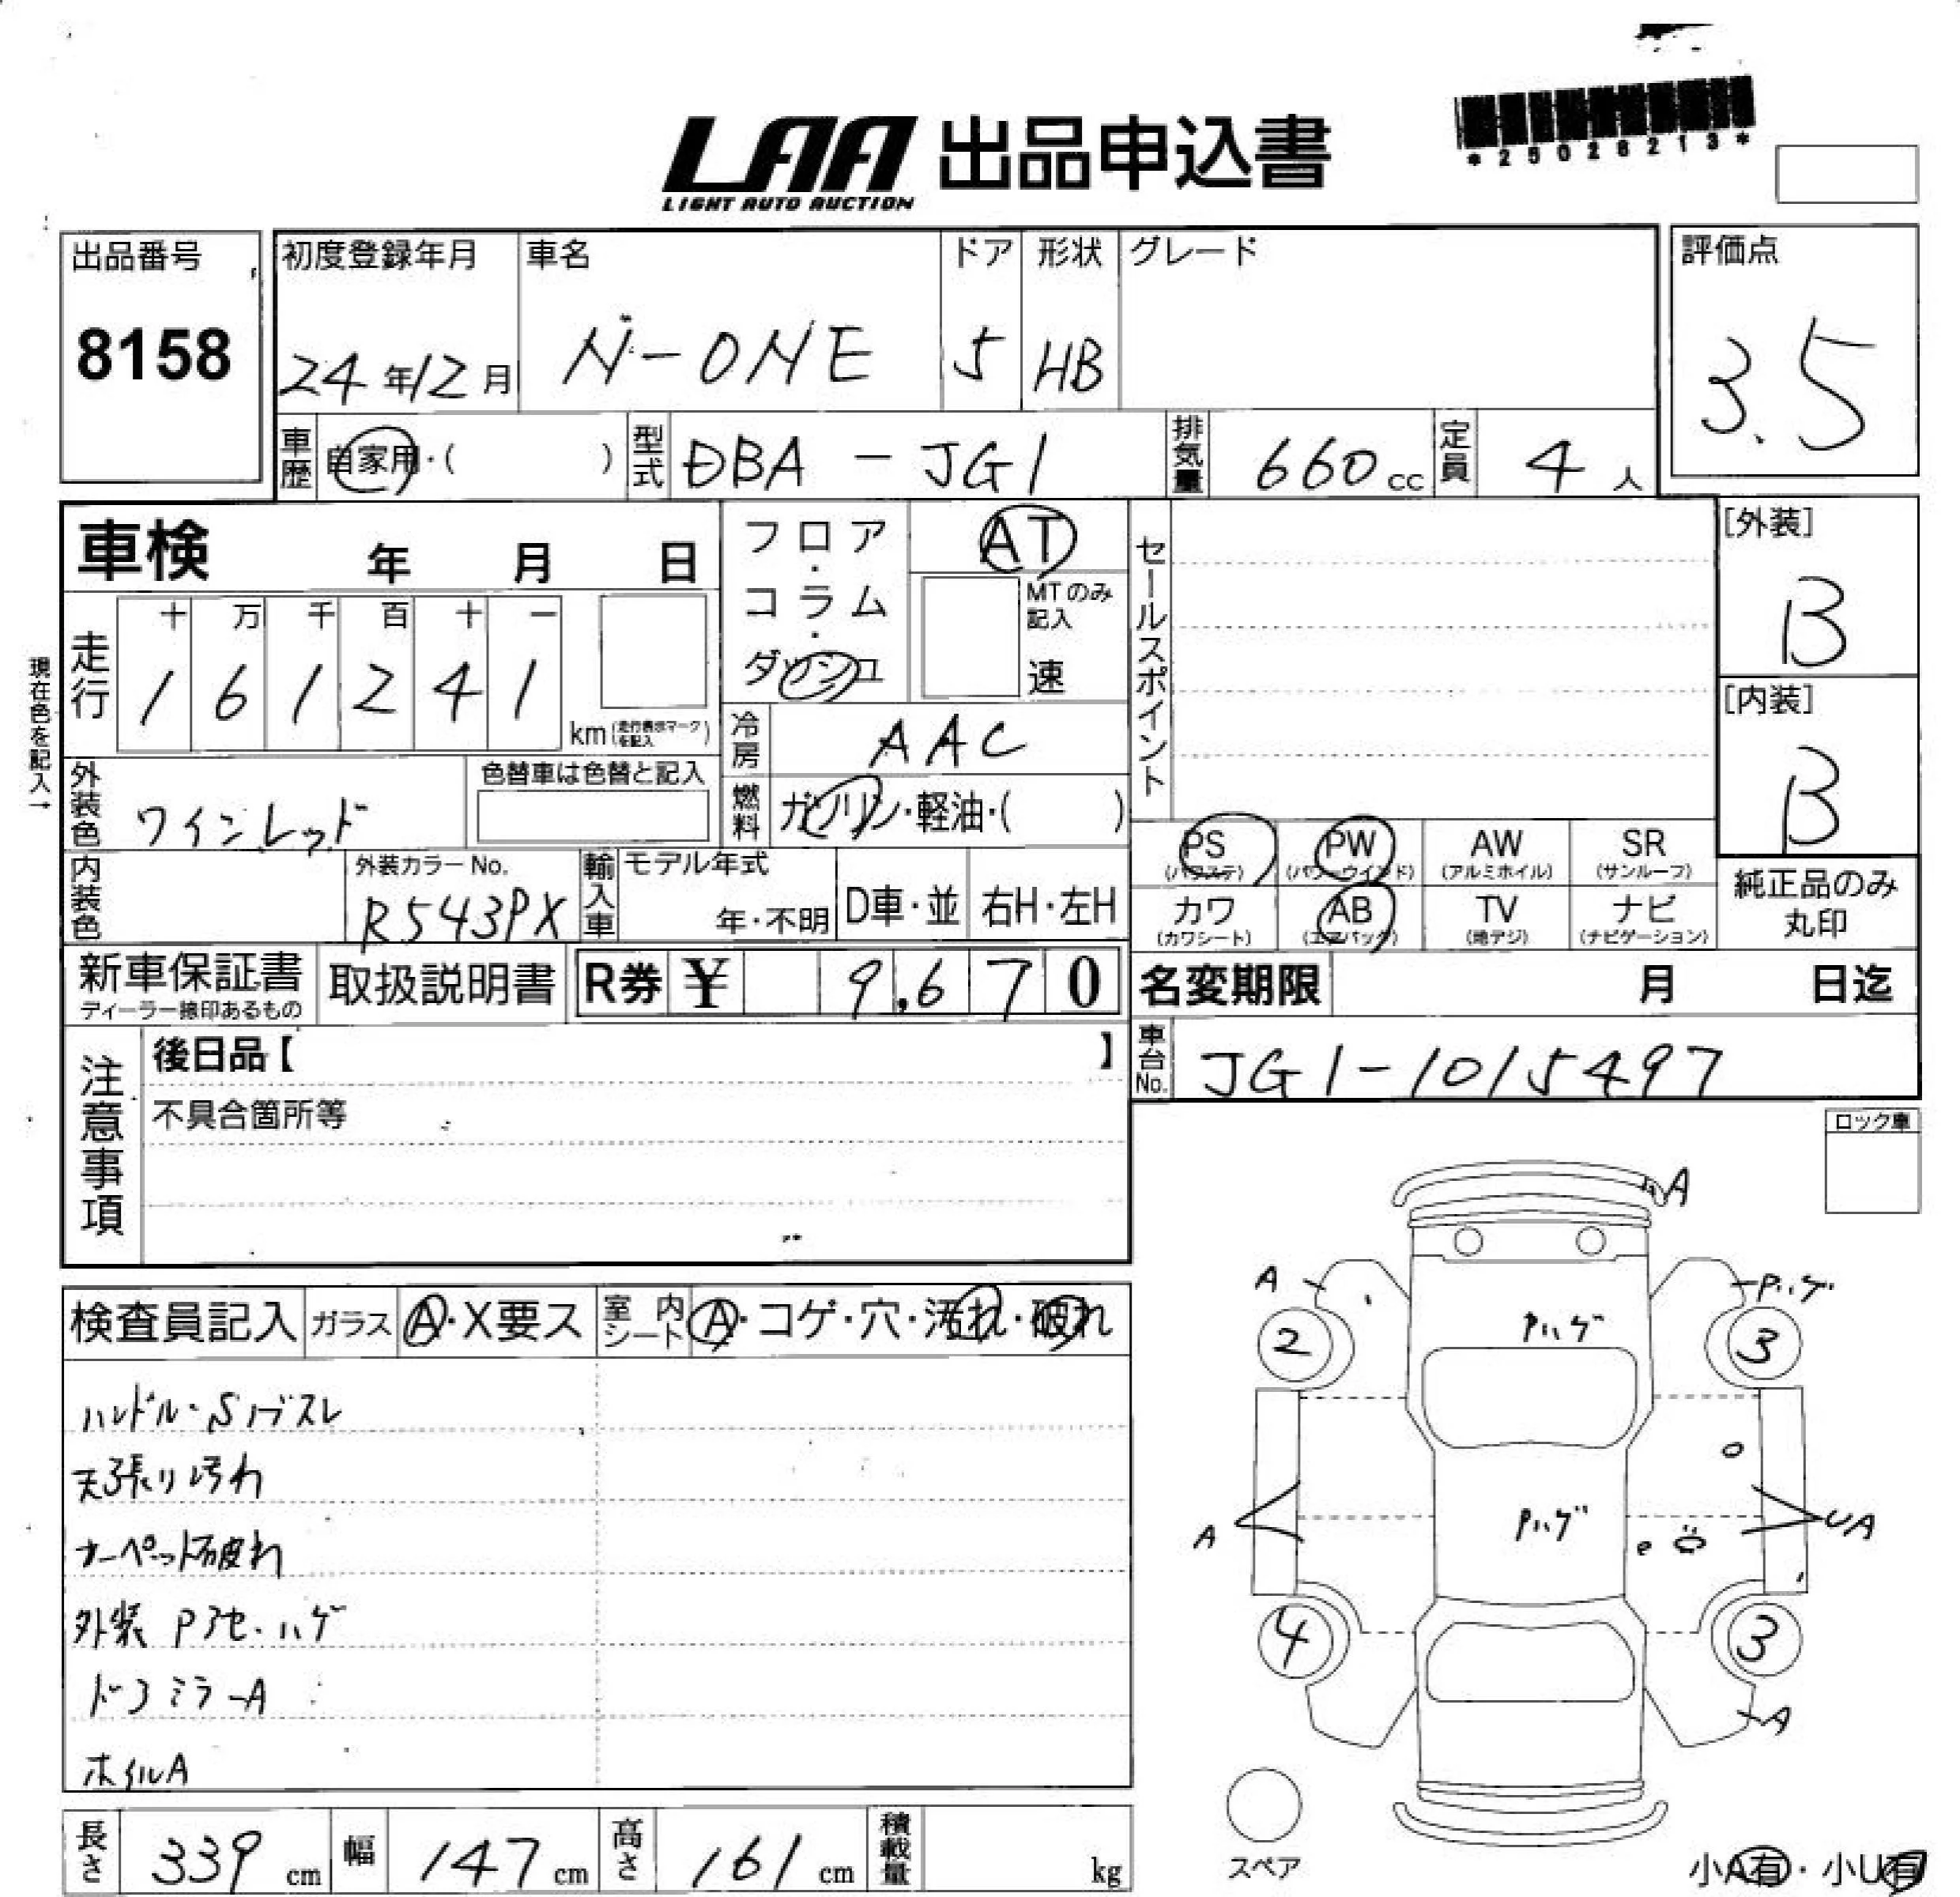 LAA 出品申込書
LIGHT AUTO AUCTION
*25028213*
出品番号
8158
初度登録年月
24年12月
車名
N-ONE
ドア
5
形状
HB
グレード
評価点
3.5
車歴
自家用・( )
型式
DBA-JG1
排気量
660cc
定員
4人
車検 年 月 日
現在色を記入→
走行
十 万 千 百 十 一
1 6 1 2 4 1
km(走行表示マークを記入)
フロア・コラム・ダッシュ
AT
MTのみ記入
速
冷房
AAC
燃料
ガソリン・軽油・( )
セールスポイント
[外装]
B
[内装]
B
外装色
ワインレッド
色替車は色替と記入
内装色
外装カラーNo.
R543PX
輸入車
モデル年式
年・不明
D車・並
右H・左H
PS
(パワステ)
PW
(パワーウインド)
AW
(アルミホイル)
SR
(サンルーフ)
カワ
(カワシート)
AB
(エアバック)
TV
(地デジ)
ナビ
(ナビゲーション)
純正品のみ
丸印
新車保証書
ディーラー捺印あるもの
取扱説明書
R券 ¥ 9,670
名変期限 月 日迄
車台No.
JG1-1015497
注意事項
後日品【 】
不具合箇所等
ロック車
検査員記入
ガラス
A・X要ス
室内シート
A・コゲ・穴・汚れ・破れ
ハンドル・Sノブスレ
天張り汚れ
カーペット破れ
外装 Pアセ・ハゲ
ドアミラーA
ホイルA
A
A
Pハゲ
2
Pハゲ
3
A
Pハゲ
UA
4
3
A
スペア
小A有・小U有
長さ
339cm
幅
147cm
高さ
161cm
積載量
kg